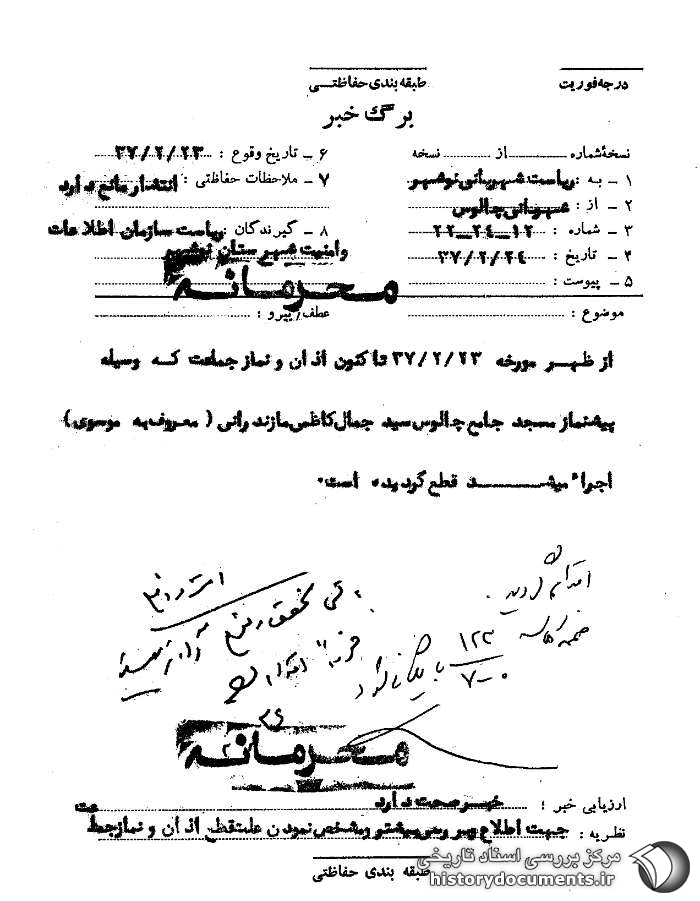 درجه فوریت
طبقه بندی حفاظتـی
برگ خبر
نسخهٔ شماره ........ از ........ نسخه
۱ ـ به : ریاست شهربانی نوشهر
۲ ـ از : شهربانی چالوس
۳ ـ شماره : ۱۲ــ۲۴ــ۲۲
۴ ـ تاریخ : ۳۷/۲/۲۴
۵ ـ پیوست :
۶ ـ تاریخ وقوع : ۳۷/۲/۲۳
۷ ـ ملاحظات حفاظتی : انتشار مانع دارد
۸ ـ گیرندگان : ریاست سازمان اطلاعات
وامنیت شهرستان نوشهر
محرمانه
موضوع :
عطف/پیرو :
از ظهر مورخه ۳۷/۲/۲۳ تاکنون اذان و نماز جماعت که وسیله
پیشنماز مسجد جامع چالوس سید جمال کاظمی مازندرانی ( معروف به موسوی )
اجراء میشـــد قطع گردیده است.
اقدام گردید
ضمیمه
۱۲۳
۷-۰
محرمانه
ارزیابی خبر : خبر صحت دارد
نظریه : جهت اطلاع وبررسی بیشتر ومشخص نمودن علت قطع اذان و نماز جما
عت
طبقه بندی حفاظتی
مرکز بررسی اسناد تاریخی
historydocuments.ir